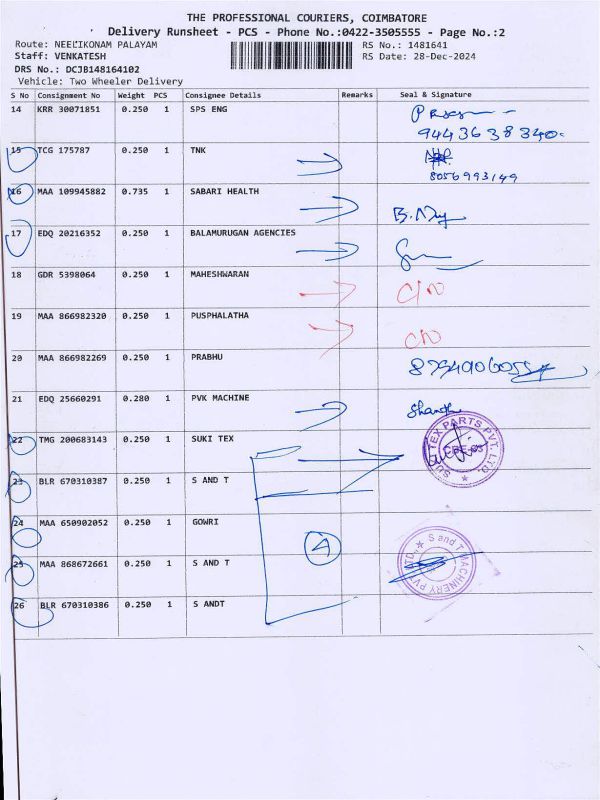 THE PROFESSIONAL COURIERS, COIMBATORE
Delivery Runsheet - PCS - Phone No.:0422-3505555 - Page No.:2
Route: NEELIKONAM PALAYAM RS No.: 1481641
Staff: VENKATESH RS Date: 28-Dec-2024
DRS No.: DCJB148164102
Vehicle: Two Wheeler Delivery
S No Consignment No Weight PCS Consignee Details Remarks Seal & Signature
14 KRR 30071851 0.250 1 SPS ENG
9443638340
15 TCG 175787 0.250 1 TNK
8056993149
16 MAA 109945882 0.735 1 SABARI HEALTH
17 EDQ 20216352 0.250 1 BALAMURUGAN AGENCIES
18 GDR 5398064 0.250 1 MAHESHWARAN
19 MAA 866982320 0.250 1 PUSPHALATHA
20 MAA 866982269 0.250 1 PRABHU
21 EDQ 25660291 0.280 1 PVK MACHINE
22 TMG 200683143 0.250 1 SUKI TEX
SUKI TEX PARTS PVT. LTD.
23 BLR 670310387 0.250 1 S AND T
24 MAA 650902052 0.250 1 GOWRI
4
25 MAA 868672661 0.250 1 S AND T
S and T MACHINERY PVT. LTD.,
26 BLR 670310386 0.250 1 S ANDT